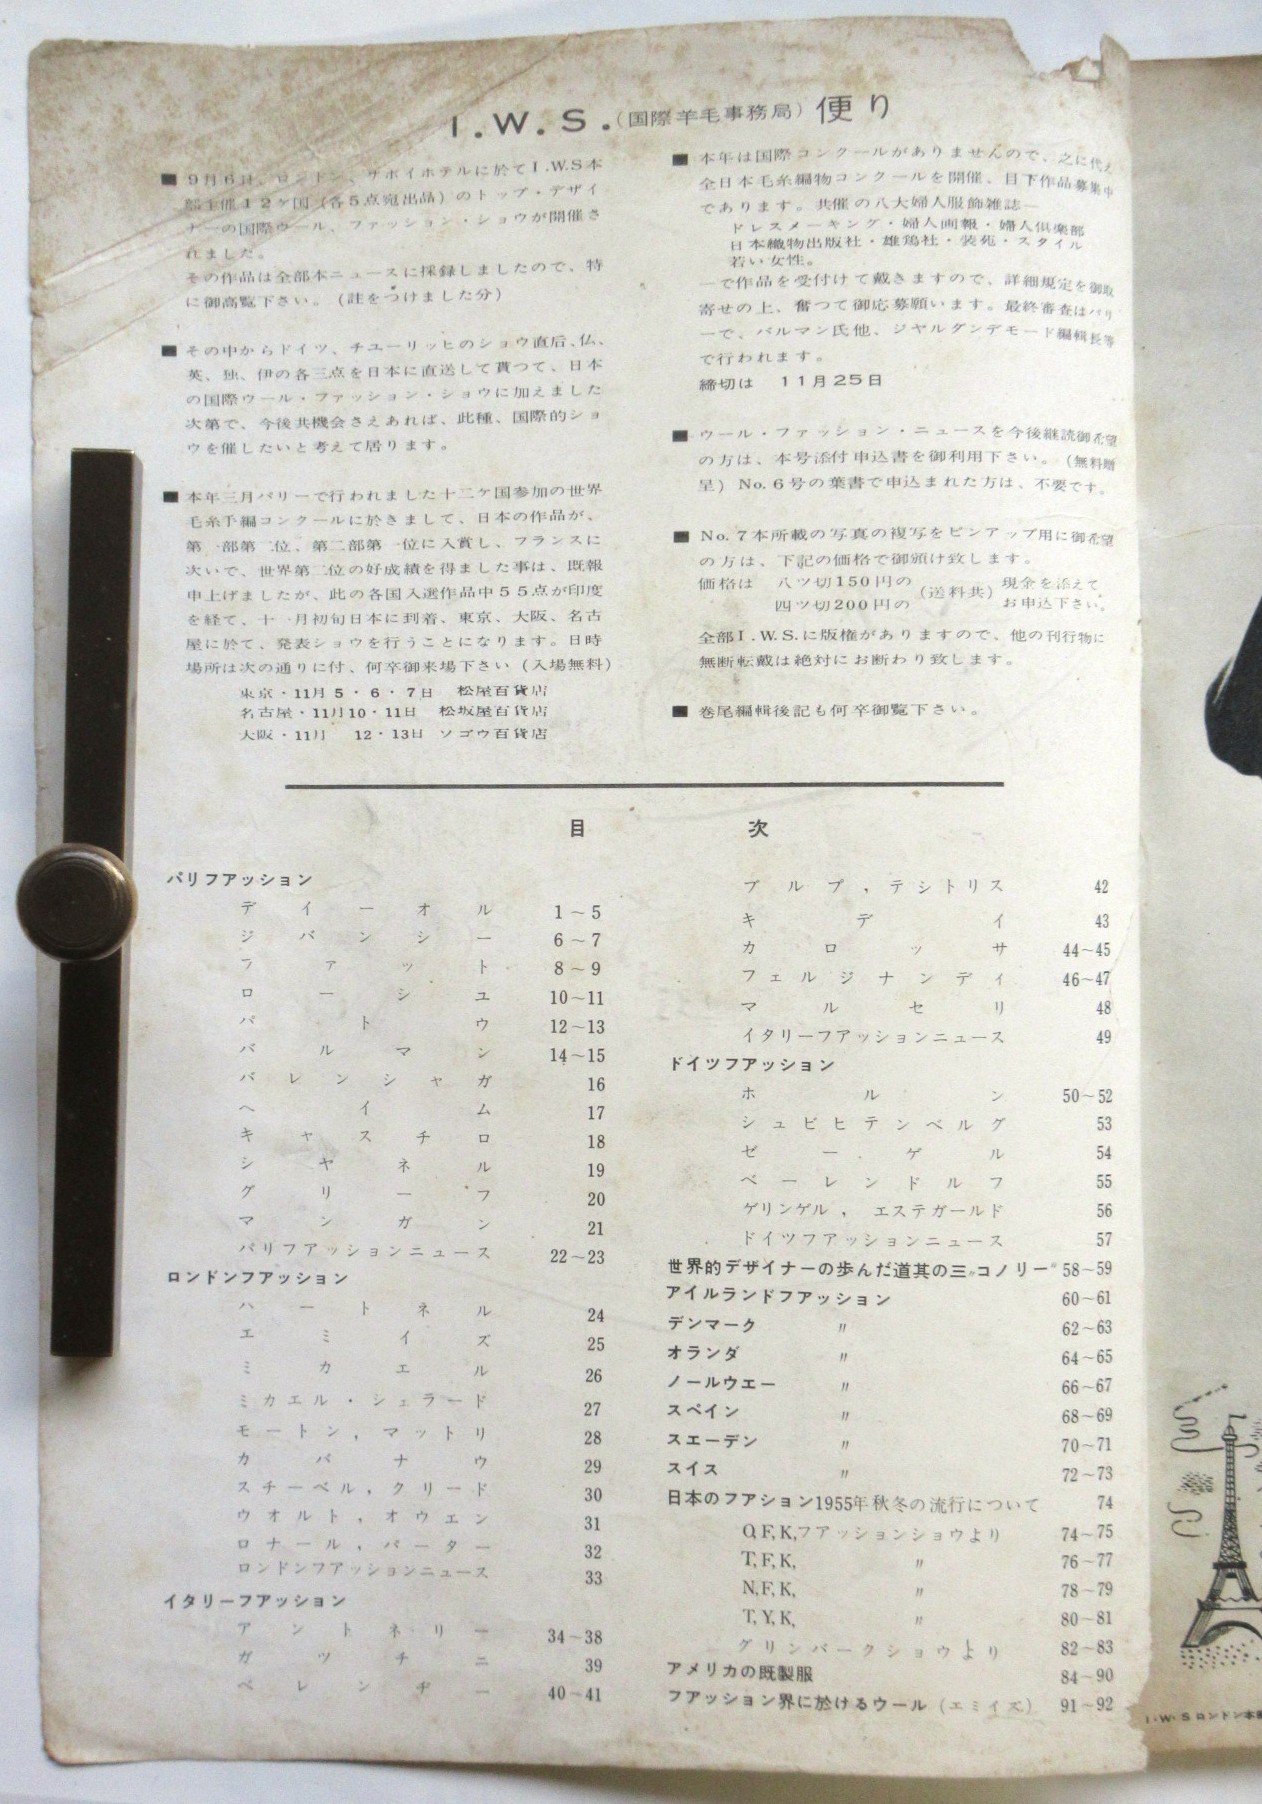 I.W.S.(国際羊毛事務局)便り
■ 9月6日、ロンドン、サボイホテルに於てI.W.S本
部主催12ケ国(各5点宛出品)のトップ・デザイ
ナーの国際ウール、ファッション・ショウが開催さ
れました。
その作品は全部本ニュースに採録しましたので、特
に御高覧下さい。(註をつけました分)
■ その中からドイツ、チユーリッヒのショウ直后、仏、
英、独、伊の各三点を日本に直送して貰つて、日本
の国際ウール・ファッション・ショウに加えました
次第で、今後共機会さえあれば、此種、国際的ショ
ウを催したいと考えて居ります。
■ 本年三月パリーで行われました十二ケ国参加の世界
毛糸手編コンクールに於きまして、日本の作品が、
第一部第二位、第二部第一位に入賞し、フランスに
次いで、世界第二位の好成績を得ました事は、既報
申上げましたが、此の各国入選作品中55点が印度
を経て、十一月初旬日本に到着、東京、大阪、名古
屋に於て、発表ショウを行うことになります。日時
場所は次の通りに付、何卒御来場下さい(入場無料)
東京・11月5・6・7日 松屋百貨店
名古屋・11月10・11日 松坂屋百貨店
大阪・11月 12・13日 ソゴウ百貨店
■ 本年は国際コンクールがありませんので、之に代え
全日本毛糸編物コンクールを開催、目下作品募集中
であります。共催の八大婦人服飾雑誌―
ドレスメーキング・婦人画報・婦人倶楽部
日本織物出版社・雄鶏社・装苑・スタイル
若い女性。
―で作品を受付けて戴きますので、詳細規定を御取
寄せの上、奮つて御応募願います。最終審査はパリ
ーで、バルマン氏他、ジヤルダンデモード編輯長等
で行われます。
締切は 11月25日
■ ウール・ファッション・ニュースを今後継読御希望
の方は、本号添付申込書を御利用下さい。(無料贈
呈)No.6号の葉書で申込まれた方は、不要です。
■ No.7本所載の写真の複写をピンアップ用に御希望
の方は、下記の価格で御頒け致します。
価格は 八ツ切150円の (送料共) 現金を添えて
四ツ切200円の お申込下さい。
全部I.W.S.に版権がありますので、他の刊行物に
無断転載は絶対にお断わり致します。
■ 巻尾編輯後記も何卒御覧下さい。
目 次
パリフアッション
デイーオル 1~5
ジバンシー 6~7
ファット 8~9
ローシユ 10~11
パトウ 12~13
バルマン 14~15
バレンシャガ 16
ヘイム 17
キャスチロ 18
シヤネル 19
グリーフ 20
マンガン 21
パリフアッションニュース 22~23
ロンドンフアッション
ハートネル 24
エミイズ 25
ミカエル 26
ミカエル・シェラード 27
モートン,マットリ 28
カバナウ 29
スチーベル,クリード 30
ウオルト,オウエン 31
ロナール,パーター 32
ロンドンフアッションニュース 33
イタリーフアッション
アントネリー 34~38
ガツチニ 39
ベレンヂー 40~41
ブルプ,テシトリス 42
キデイ 43
カロッサ 44~45
フェルジナンディ 46~47
マルセリ 48
イタリーフアッションニュース 49
ドイツフアッション
ホルン 50~52
シュビヒテンベルグ 53
ゼーゲル 54
ベーレンドルフ 55
ゲリンゲル, エステガールド 56
ドイツフアッションニュース 57
世界的デザイナーの歩んだ道其の三〝コノリー〟 58~59
アイルランドフアッション 60~61
デンマーク 〃 62~63
オランダ 〃 64~65
ノールウエー 〃 66~67
スペイン 〃 68~69
スエーデン 〃 70~71
スイス 〃 72~73
日本のフアション1955年秋冬の流行について 74
Q,F,K,フアッションショウより 74~75
T,F,K, 〃 76~77
N,F,K, 〃 78~79
T,Y,K, 〃 80~81
グリンバークショウより 82~83
アメリカの既製服 84~90
フアッション界に於けるウール(エミイズ) 91~92
I・W・Sロンドン本